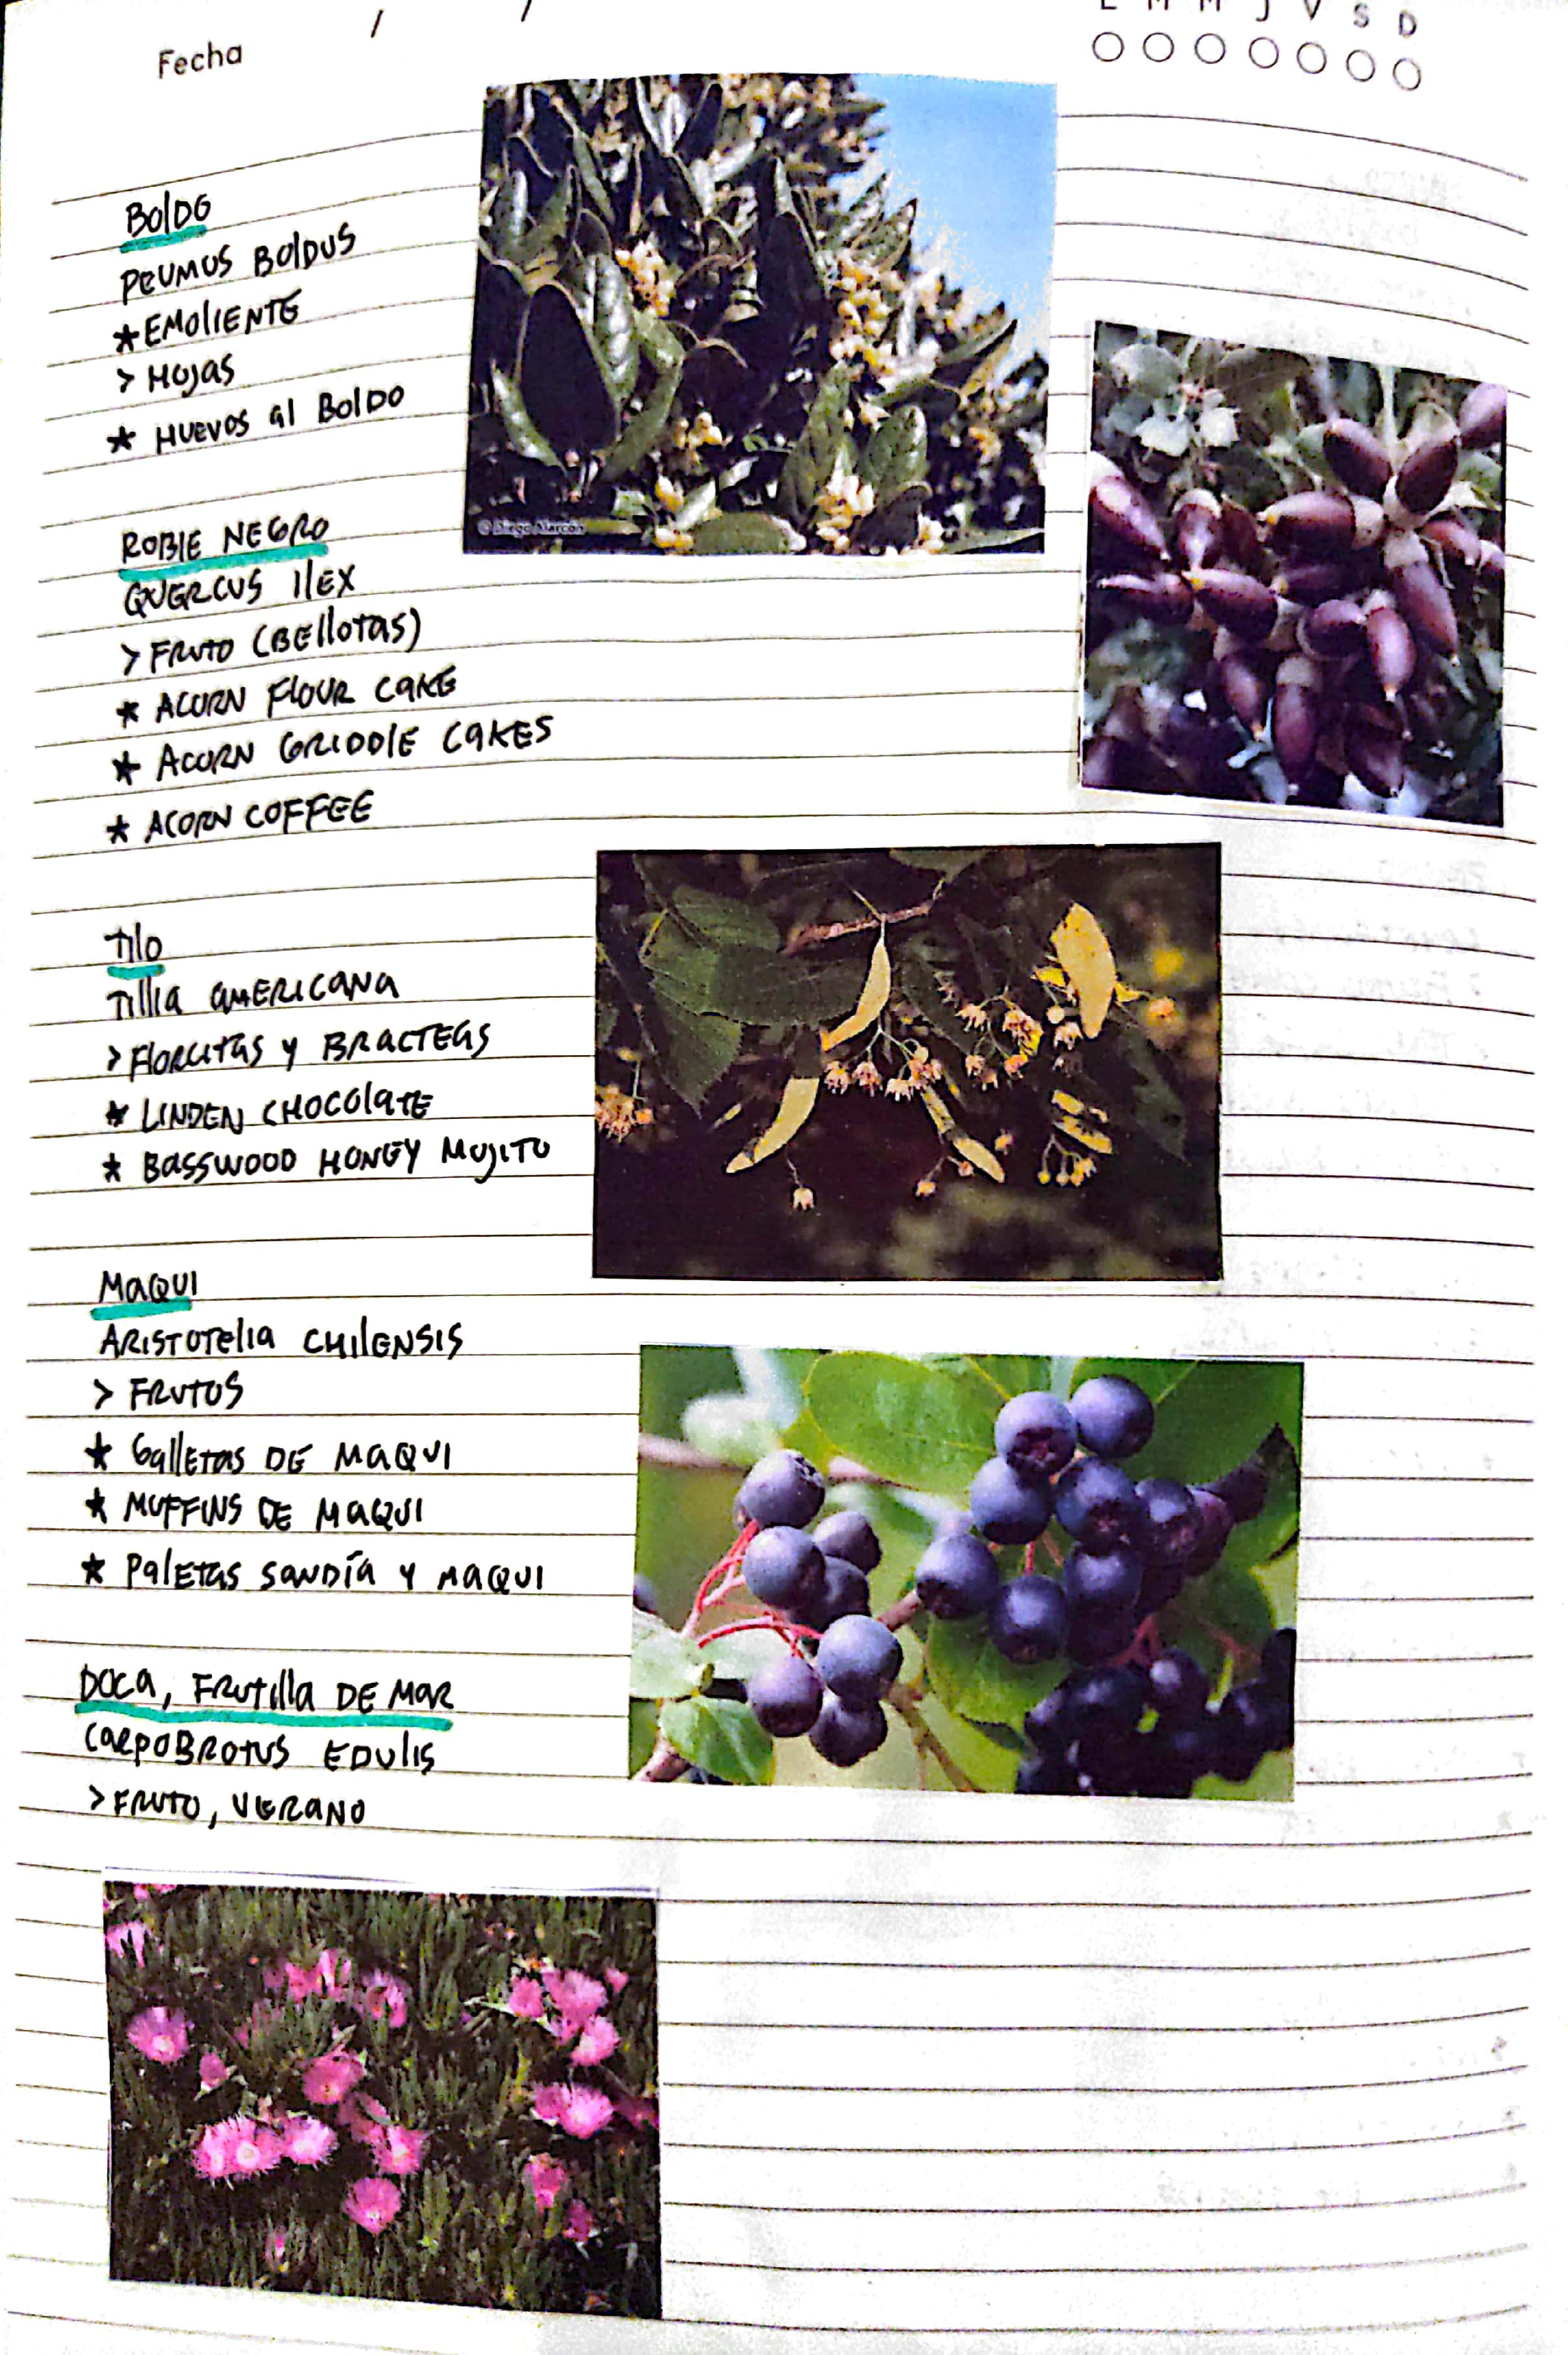 Fecha / /
L M M J V S D
BOLDO
PEUMUS BOLDUS
* EMOLIENTE
> HOJAS
* HUEVOS al BOLDO
© Diego Alarcón
ROBLE NEGRO
QUERCUS ILEX
> FRUTO (BELLOTAS)
* ACORN FLOUR CAKE
* ACORN GRIDDLE CAKES
* ACORN COFFEE
TILO
TILLIA AMERICANA
> FLORCITAS Y BRACTEAS
* LINDEN CHOCOLATE
* BASSWOOD HONEY MOJITO
MAQUI
ARISTOTELIA CHILENSIS
> FRUTOS
* GALLETAS DE MAQUI
* MUFFINS DE MAQUI
* PALETAS SANDÍA Y MAQUI
DOCA, FRUTILLA DE MAR
CARPOBROTUS EDULIS
> FRUTO, VERANO